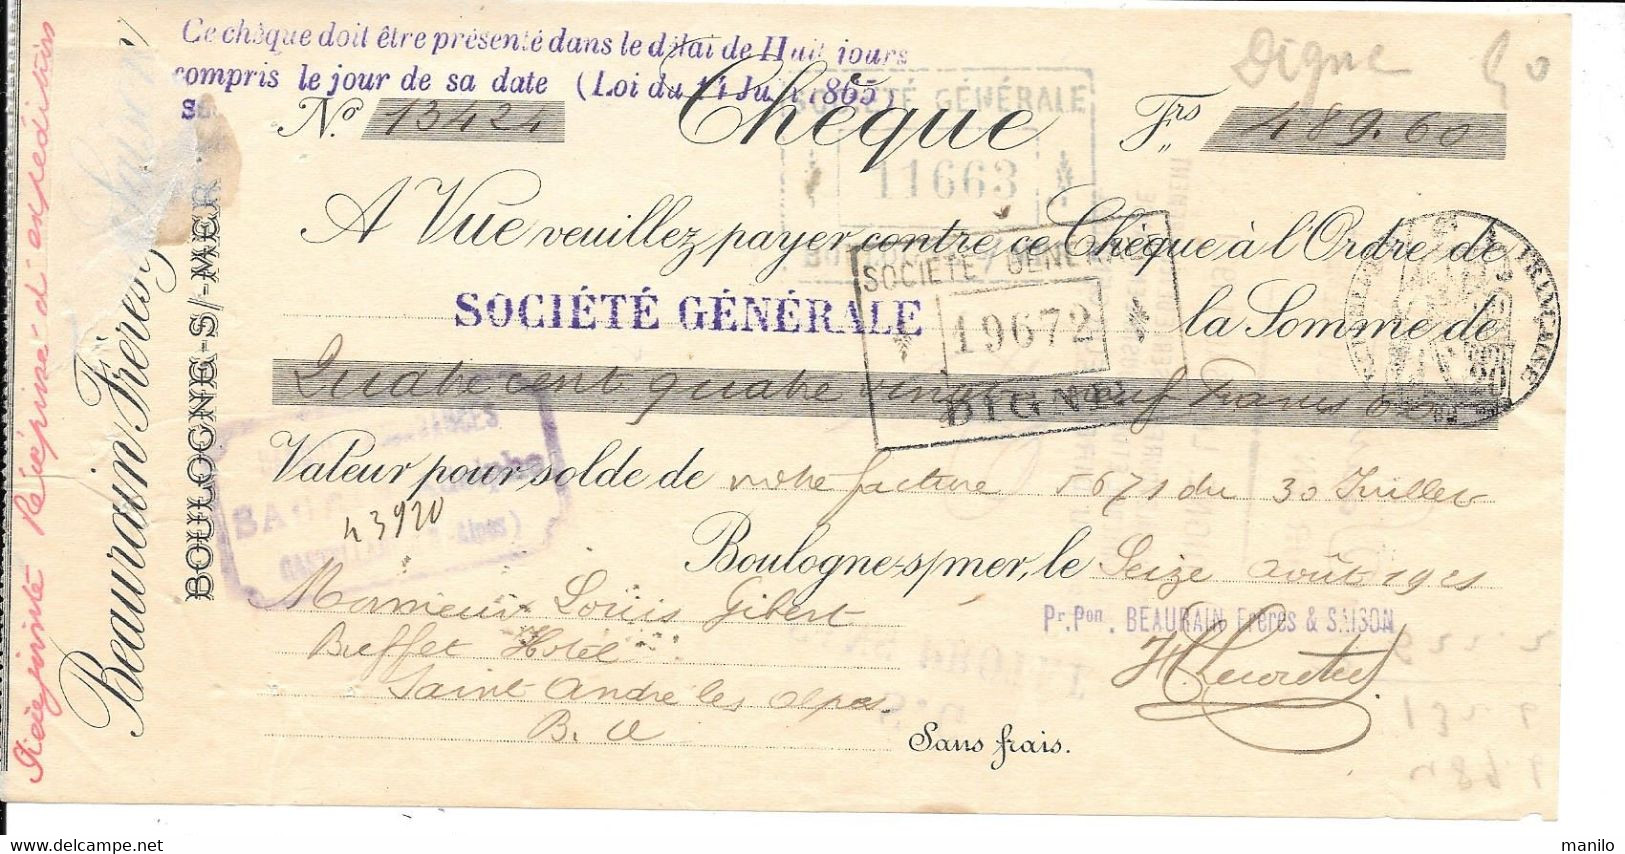 Ce chèque doit être présenté dans le délai de Huit jours
compris le jour de sa date (Loi du 14 Juin 1865)
Digne
N.º 13424
Chèque
Frs 489.60
SOCIÉTÉ GÉNÉRALE
11663
A Vue veuillez payer contre ce Chèque à l'Ordre de
SOCIÉTÉ GÉNÉRALE
la Somme de
SOCIÉTÉ GÉNÉRALE
19672
DIGNE
Quatre cent quatre vingt neuf francs 60
Valeur pour solde de notre facture 5671 du 30 Juillet
43920
Boulogne-s/mer, le Seize août 1921
Monsieur Louis Gibert
Buffet Hôtel
Saint André les Alpes
B. A
Pr. Pon. BEAURAIN Frères & SAISON
Sans frais.
Beaurain Frères
BOULOGNE-S/-MER
Ci-joint Récépissé d'expédition
manilo